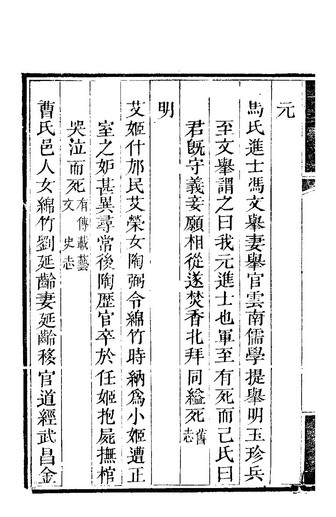 元
馬氏進士馮文舉妻舉官雲南儒學提舉明玉珍兵
至文舉謂之曰我元進士也軍至有死而已氏曰
君旣守義妾願相從遂焚香北拜同縊死舊志
明
艾姬什邡民艾榮女陶弼令綿竹時納爲小姬遭正
室之妒甚異尋常後陶歷官卒於任姬抱屍撫棺
哭泣而死有傳載藝文 史志
曹氏邑人女綿竹劉延齡妻延齡移官道經武昌金